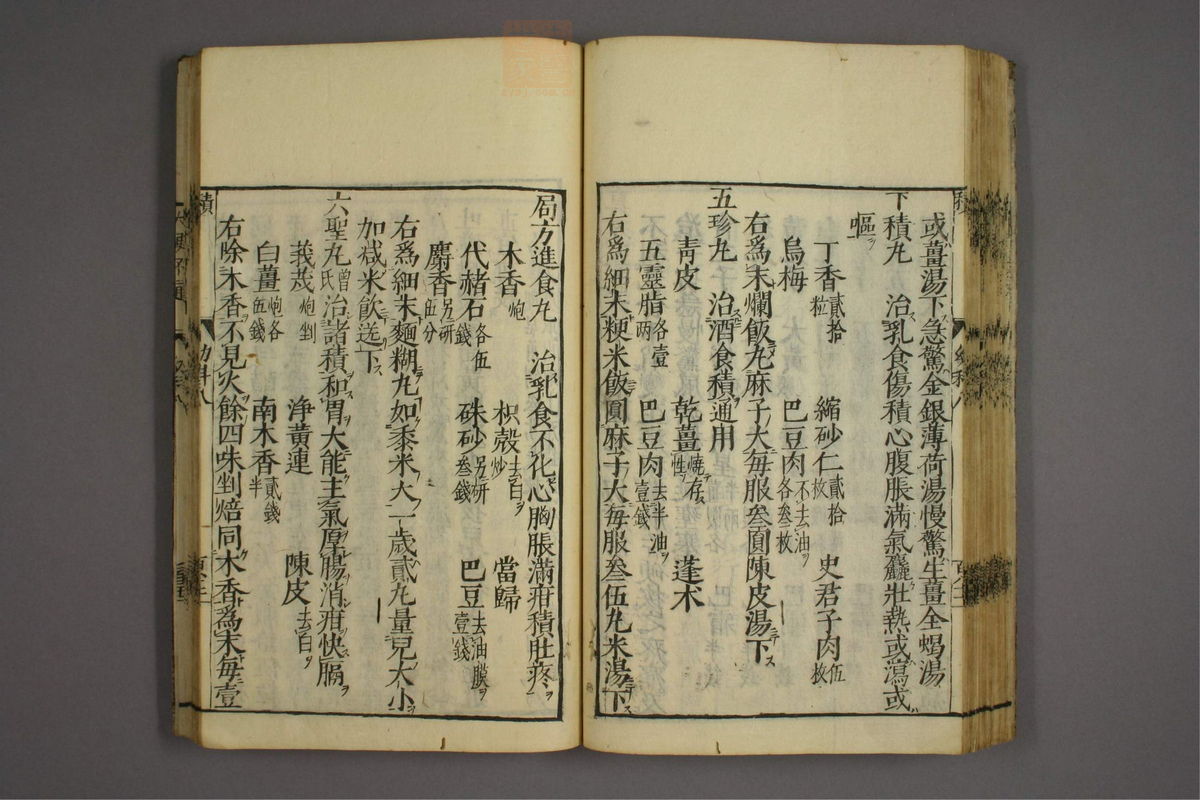 或薑湯下急驚金銀薄荷湯慢驚生薑全蝎湯
下積丸　治乳食傷積心腹脹滿氣麤壯熱或瀉或
嘔
丁香貳拾粒　縮砂仁貳拾枚　史君子肉伍枚
烏梅　巴豆肉不去油各叁枚
右爲末爛飯丸麻子大每服叁圓陳皮湯下
五珍丸　治酒食積通用
靑皮　乾薑燒存性　蓬术
五靈脂各壹兩　巴豆肉去半油壹錢
右爲細末粳米飯圓麻子大每服叁伍丸米湯下
局方進食丸　治乳食不化心胸脹滿疳積肚疼
木香炮　枳殼去白炒　當歸
代赭石各伍錢　硃砂另研叁錢　巴豆去油膜壹錢
麝香另研伍分
右爲細末麵糊丸如黍米大一歲貳丸量兒大小
加减米飲送下
六聖丸曾氏治諸積和胃大能主氣厚腸消疳快膈
莪茂炮剉　淨黃連　陳皮去白
白薑炮各伍錢　南木香貳錢半
右除木香不見火餘四味剉焙同木香爲末每壹